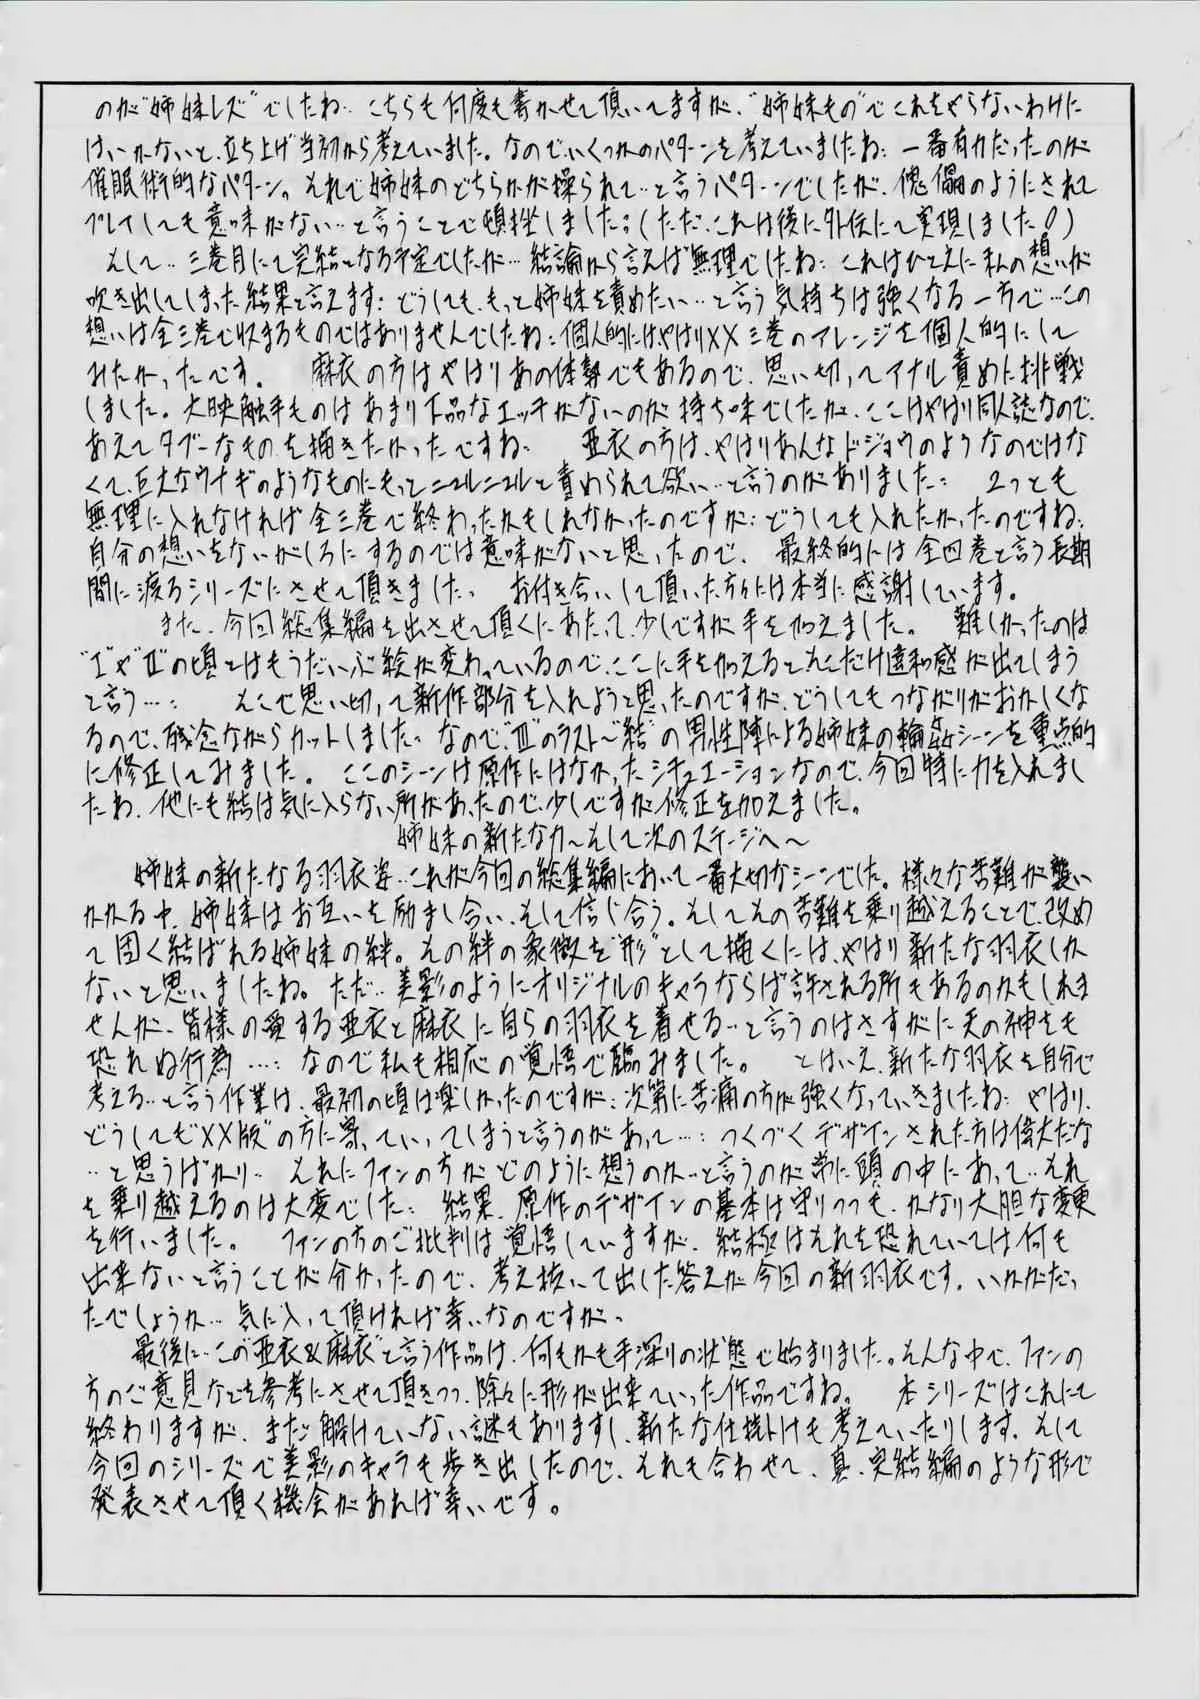 のが"姉妹レズ"でしたね‥こちらも何度も書かせて頂いてますが、"姉妹もの"でこれをやらないわけに
はいかないと、立ち上げ当初から考えていました。なので、いくつかのパターンを考えていましたね: 一番有力だったのが
催眠術的なパターン。それで姉妹のどちらかが操られて‥と言うパターンでしたが、傀儡のようにされて
プレイしても意味がない‥と言うことで頓挫しました: (ただ、これは後に外伝にて実現しました!)
そして‥三巻目にて完結となる予定でしたが…結論から言えば"無理"でしたね: これはひとえに私の想いが
吹き出してしまった結果と言えます: どうしても、もっと姉妹を責めたい‥と言う気持ちは強くなる一方で…この
想いは全三巻で収まるものではありませんでしたね: 個人的にはやはりXX三巻のアレンジを個人的にして
みたかったです。 麻衣の方はやはりあの体勢でもあるので、思い切ってアナル責めに挑戦
しました。大映触手ものはあまり下品なエッチがないのが持ち味でしたが、ここはやはり同人誌なので、
あえてタブーなものを描きたかったですね: 亜衣の方は、やはりあんなドジョウのようなのではな
くて、巨大なウナギのようなものにもっとニュルニュルと責められて欲しい…と言うのがありました: 2つとも
無理に入れなければ全三巻で終わったかもしれなかったのですが: どうしても入れたかったのですね:
自分の想いをないがしろにするのでは意味がないと思ったので、最終的には全四巻と言う長期
間に渡るシリーズにさせて頂きました、 お付き合いして頂いた方々には本当に感謝しています。
また、今回総集編を出させて頂くにあたって、少しですが手を加えました。 難しかったのは
"Ⅰ"や"Ⅱ"の頃とはもうだいぶ絵が変わっているので、ここに手を加えるとそこだけ違和感が出てしまう
と言う…: そこで思い切って新作部分を入れようと思ったのですが、どうしてもつながりがおかしくな
るので、残念ながらカットしました、なので、"Ⅲ"のラスト〜"結"の男性陣による姉妹の輪姦シーンを重点的
に修正してみました。 ここのシーンは原作にはなかったシチュエーションなので、今回特に力を入れまし
たね、他にも結は気に入らない所があったので、少しですが修正を加えました。
姉妹の新たな力〜そして次のステージへ〜
姉妹の新たなる羽衣姿‥これが今回の総集編において一番大切なシーンでした。様々な苦難が襲い
かかる中、姉妹はお互いを励まし合い、そして信じ合う。そしてその苦難を乗り越えることで、改め
て固く結ばれる姉妹の絆。その絆の象徴を"形"として描くには、やはり新たな羽衣しか
ないと思いましたね。ただ‥美影のようにオリジナルのキャラならば許される所もあるのかもしれま
せんが、皆様の愛する亜衣と麻衣に自らの羽衣を着せる‥と言うのはさすがに天の神をも
恐れぬ行為…: なので私も相応の覚悟で臨みました。 とはいえ、新たな羽衣を自分で
考える‥と言う作業は、最初の頃は楽しかったのですが: 次第に苦痛の方が強くなっていきましたね: やはり、
どうしても"XX版"の方に寄っていってしまうと言うのがあって…: つくづくデザインされた方は偉大だな
‥と思うばかり‥ それにファンの方がどのように想うのか‥と言うのが常に頭の中にあって‥それ
を乗り越えるのは大変でした: 結果、原作のデザインの基本は守りつつも、かなり大胆な変更
を行いました。 ファンの方のご批判は覚悟していますが、結極はそれを恐れていては何も
出来ないと言うことが分かったので、考え抜いて出した答えが今回の新羽衣です。いかがだっ
たでしょうか…気に入って頂ければ幸いなのですが、
最後に‥この"亜衣&麻衣"と言う作品は、何もかも手深りの状態で始まりました。そんな中で、ファンの
方のご意見などを参考にさせて頂きつつ、除々に形が出来ていった作品ですね。 本シリーズはこれにて
終わりますが、まだ解けていない謎もありますし、新たな仕掛けも考えていたりします。そして
今回のシリーズで美影のキャラも歩き出したので、それも合わせて、真・完結編のような形で
発表させて頂く機会があれば幸いです。